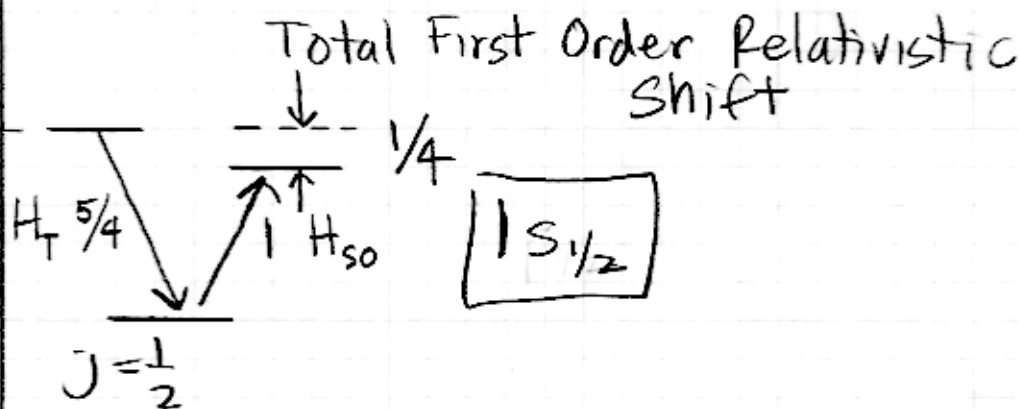 Total First Order Relativistic
Shift
1/4
H_T 5/4
1 H_SO
1 S_1/2
J = 1/2